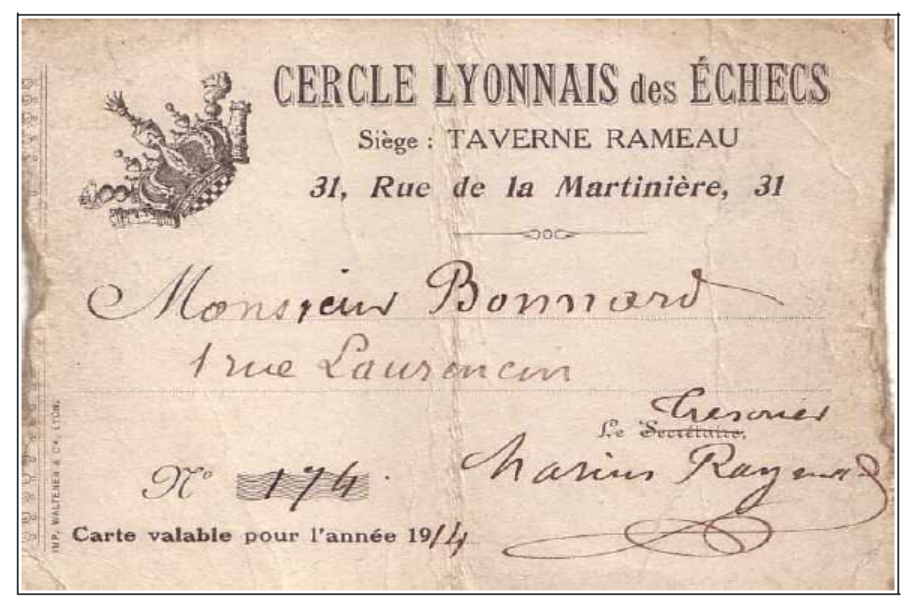 CERCLE LYONNAIS des ÉCHECS
Siège : TAVERNE RAMEAU
31, Rue de la Martinière, 31
Monsieur Bonnard
1 rue Laurencin
Tresorier
Le Secrétaire,
Marius
Nº 174
Carte valable pour l'année 1914
IMP. WALTENER & Cie, LYON.